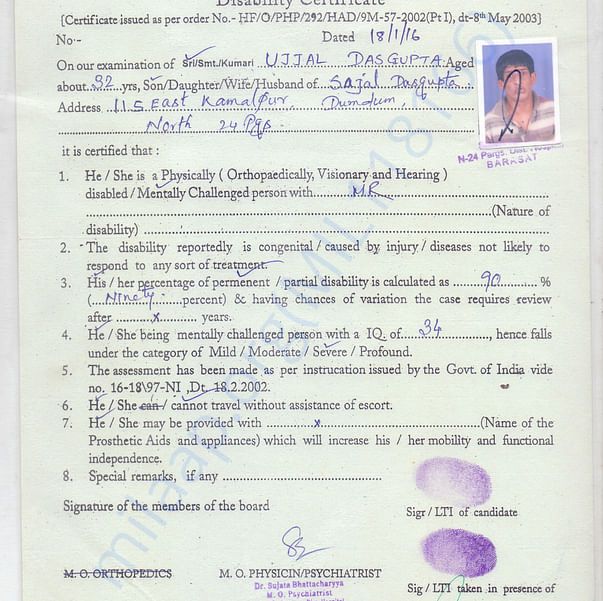 Disability Certificate
[Certificate issued as per order No.- HF/O/PHP/292/HAD/9M-57-2002(Pt I), dt-8th May 2003]
No- Dated 18/1/16
On our examination of Sri/Smt./Kumari UJJAL DASGUPTA Aged
about 32 yrs, Son/Daughter/Wife/Husband of Sajal Dasgupta
Address 115 East Kamalpur, Dumdum,
North 24 Pgs.
N-24 Pargs. Dist. Hospital
BARASAT
it is certified that :
1. He / She is a Physically ( Orthopaedically, Visionary and Hearing )
disabled / Mentally Challenged person with MR
(Nature of
disability)
2. The disability reportedly is congenital / caused by injury / diseases not likely to
respond to any sort of treatment.
3. His / her percentage of permenent / partial disability is calculated as 90 %
( Ninety percent) & having chances of variation the case requires review
after x years.
4. He / She being mentally challenged person with a IQ of 34 , hence falls
under the category of Mild / Moderate / Severe / Profound.
5. The assessment has been made as per instrucation issued by the Govt. of India vide
no. 16-18\97-NI ,Dt. 18.2.2002.
6. He / She can / cannot travel without assistance of escort.
7. He / She may be provided with x (Name of the
Prosthetic Aids and appliances) which will increase his / her mobility and functional
independence.
8. Special remarks, if any
Signature of the members of the board
Sigr / LTI of candidate
M. O. ORTHOPEDICS M. O. PHYSICIN/PSYCHIATRIST
Dr. Sujata Bhattacharyya
M. O. Psychiatrist
Sig / LTI taken in presence of